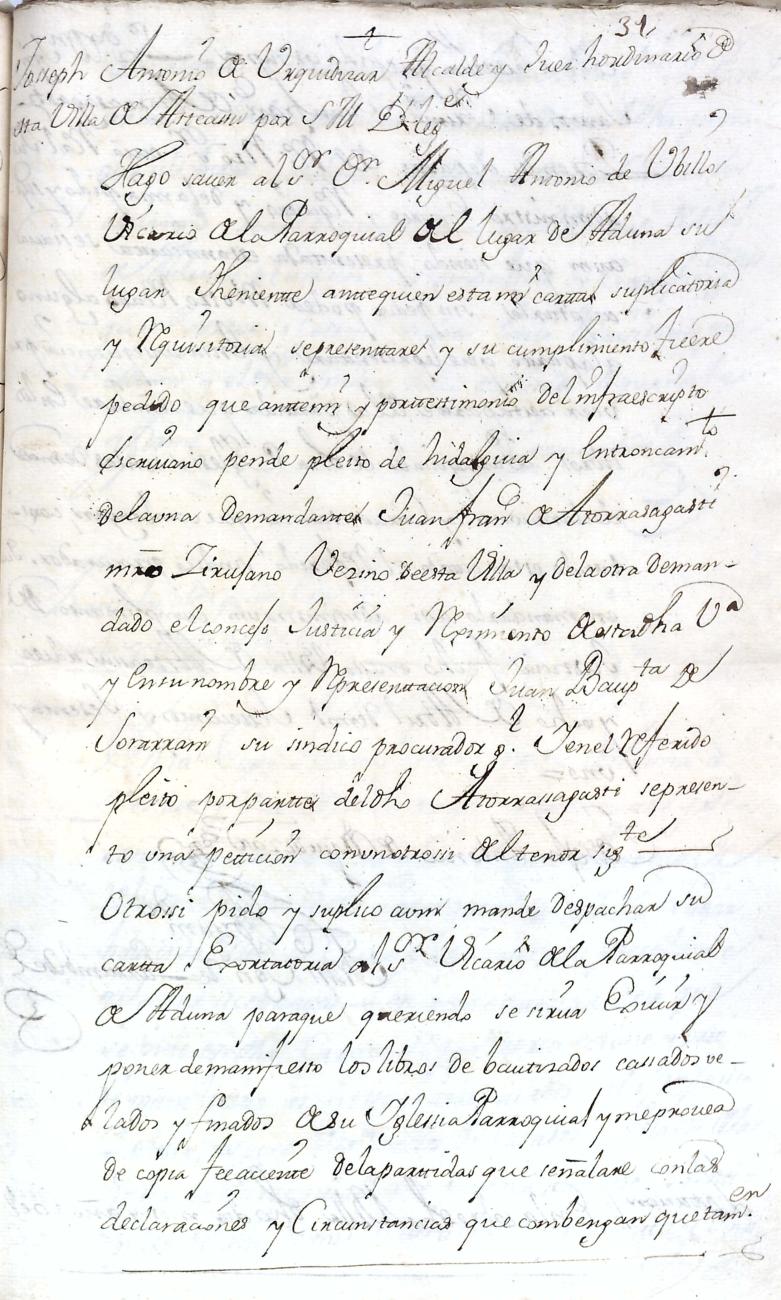 31
Joseph Antonio de Urquidizar Alcalde y Juez hordinario de
esta Villa de por S M
Hago saver al Sor Dn Miguel Antonio de Ubillos
Vicario de la Parroquial del lugar de Aduna su
lugar Theniente antte quien esta mi cartta suplicatoria
y Rquisitoria se presenttare y su cumplimiento fuere
pedido que antte mi y por testimonio del infraescripto
escrivano pende pleito de hidalguia y Entroncamto
de la una demandante Juan Franco de Atorrasagasti
mro Zirujano Vezino de esta Villa y de la otra deman-
dado el concejo Justicia y Reximiento de esta dha Va
y En su nombre y Representtacion Juan Bapta de
Sorarrain su sindico procurador gl. Y en el referido
pleito por partte del dho Atorrassagasti se presen-
to una petticion con un otrossi del tenor sigte
Otrossi pido y suplico a vm mande despachar su
cartta Exortatoria al Sor Vicario de la Parroquial
de Aduna para que queriendo se sirva Exivir y
poner de manifiesto los libros de bautizados cassados ve-
lados y finados de su Iglessia Parroquial y me provea
de copia feeaciente de la parttidas que señalare con las
declaraciones y Circunstancias que combengan que tamen.